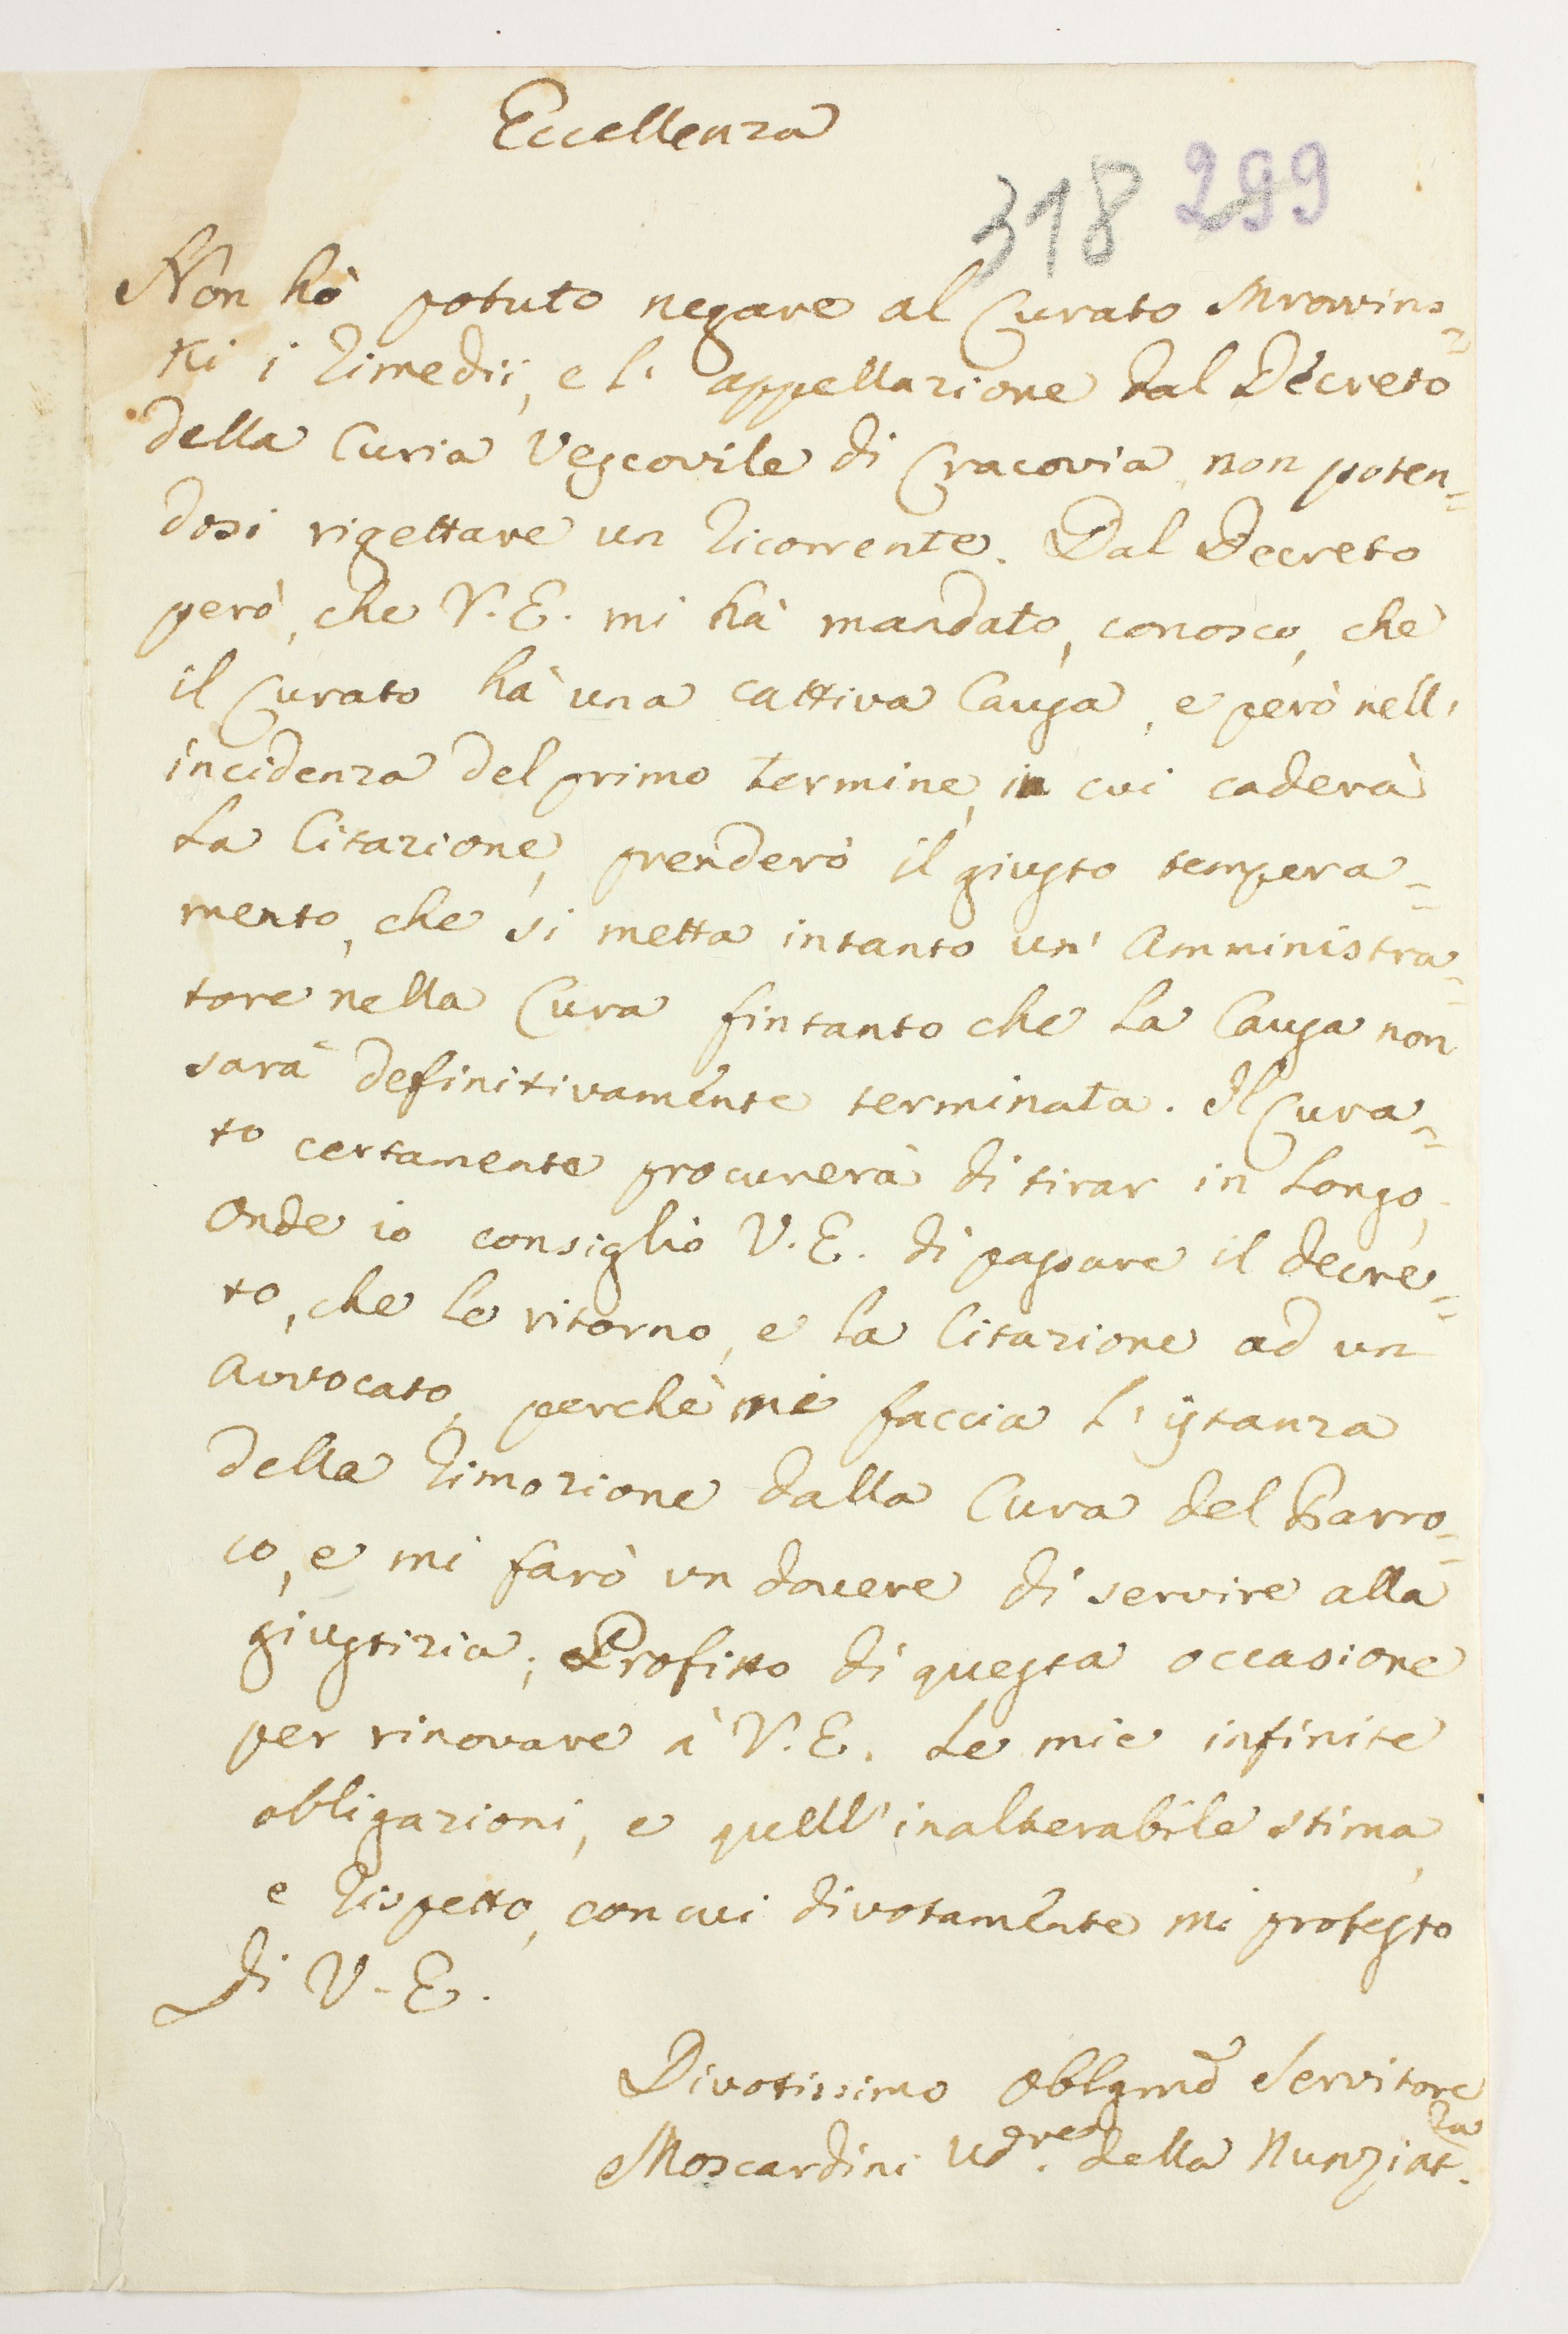 Eccellenza
318 299
Non hò potuto negare al Curato Mrowins=
ki i Rimedii, e l' appellazione dal Decreto
della Curia Vescovile di Cracovia, non poten=
dosi rigettare un Ricorrente. Dal Decreto
però, che V.E. mi hà mandato, conosco, che
il Curato hà una cattiva Causa, e però nell'
incidenza del primo termine, in cui caderà
la Citazione, prenderò il giusto tempera=
mento, che si metta intanto un' Amministra=
tore nella Cura fintanto che la Causa non
sarà definitivamente terminata. Il Cura=
to certamente procurerà di tirar in longo,
onde io consiglio V.E. di passare il decre=
to, che le ritorno, e la Citazione ad un
Avvocato, perchè mi faccia l' istanza
della Rimozione dalla Cura del Parro=
co, e mi farò un dovere di servire alla
giustizia; Profitto di questa occasione
per rinovare à V.E. le mie infinite
obligazioni, e quell' inalterabile stima,
e Rispetto, con cui divotamente mi protesto
Di V.E.
Divotissimo Obblgmõ Servitore
Moscardini Udre. della Nunziat.ra